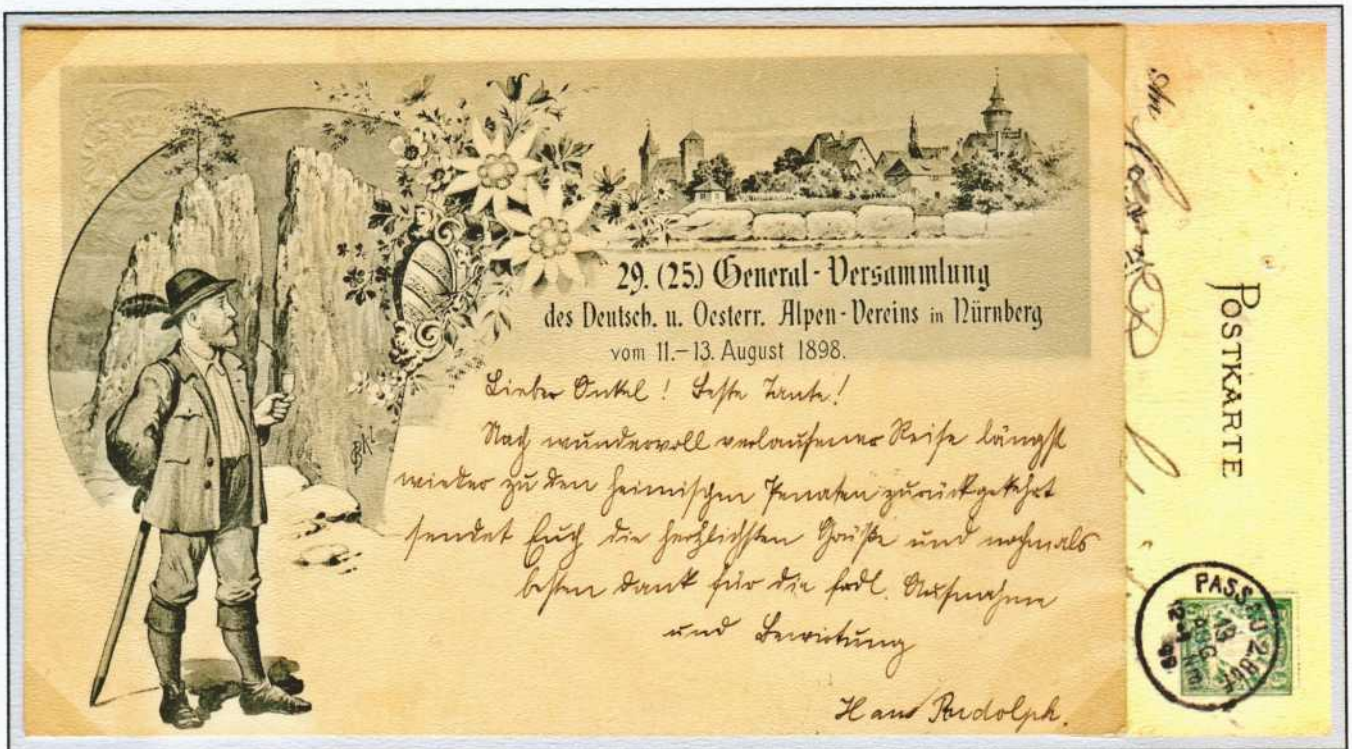 29. (25.) General-Versammlung
des Deutsch. u. Oesterr. Alpen-Vereins in Nürnberg
vom 11.–13. August 1898.
Lieber Onkel! Beste Tante!
Nach wundervoll verlaufener Reise längst
wieder zu den heimischen Penaten zurückgekehrt
sendet Euch die herzlichsten Grüße und nochmals
besten Dank für die frdl. Aufnahme
und Bewirtung
Hans Rudolph.
An
POSTKARTE
PASSAU 2. Bhf
13
AUG
Nm